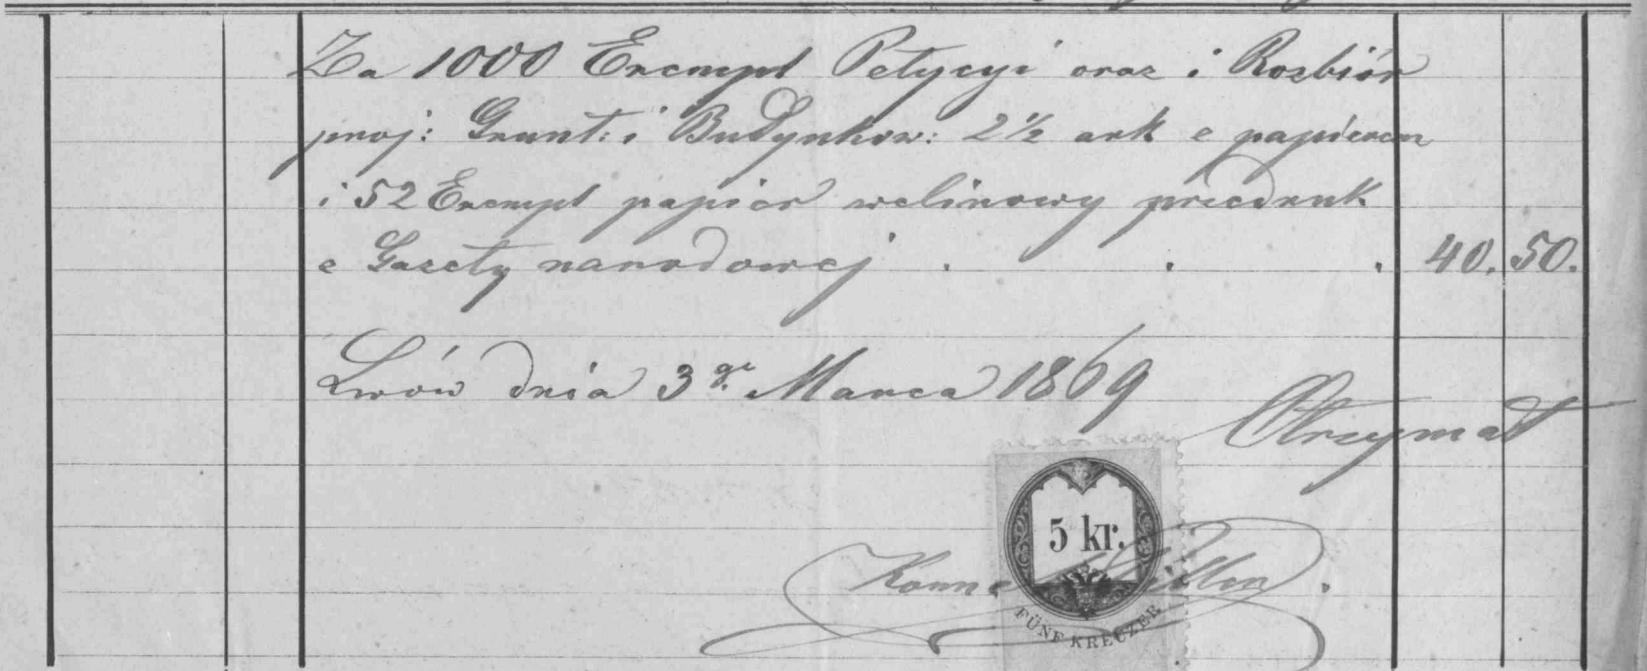 Za 1000 Exempl Petycyi oraz i Rozbiór
proj: Grunt: i Budynków: 2 ½ ark z papierem
i 52 Exempl papier welinowy przedruk
z Gazety narodowej . . . 40. 50.
Lwów dnia 3go Marca 1869
Otrzymał
5 kr.
FÜNF KREUZER